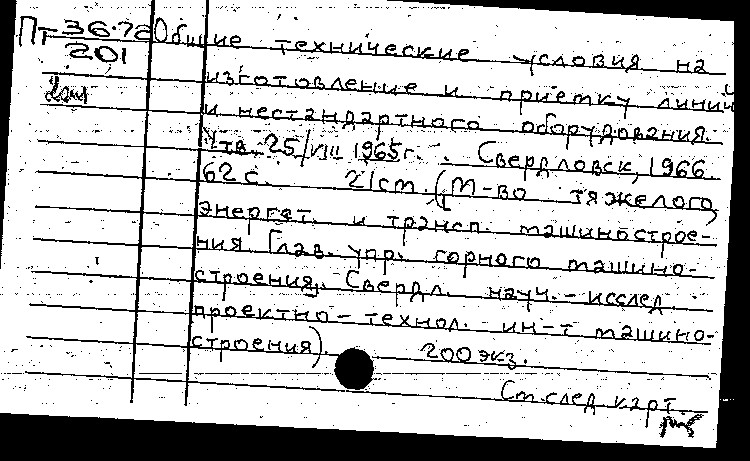 Пт 36-78 Общие технические условия на
201
изготовление и приемку линий
и нестандартного оборудования.
Утв. 25/VIII 1965г. Свердловск, 1966.
62 с. 21 см. (М-во тяжелого,
энергет. и трансп. машинострое-
ния. Глав. упр. горного машино-
строения. Свердл. науч.-исслед.
проектно-технол. ин-т машино-
строения). 200 экз.
См. след карт.